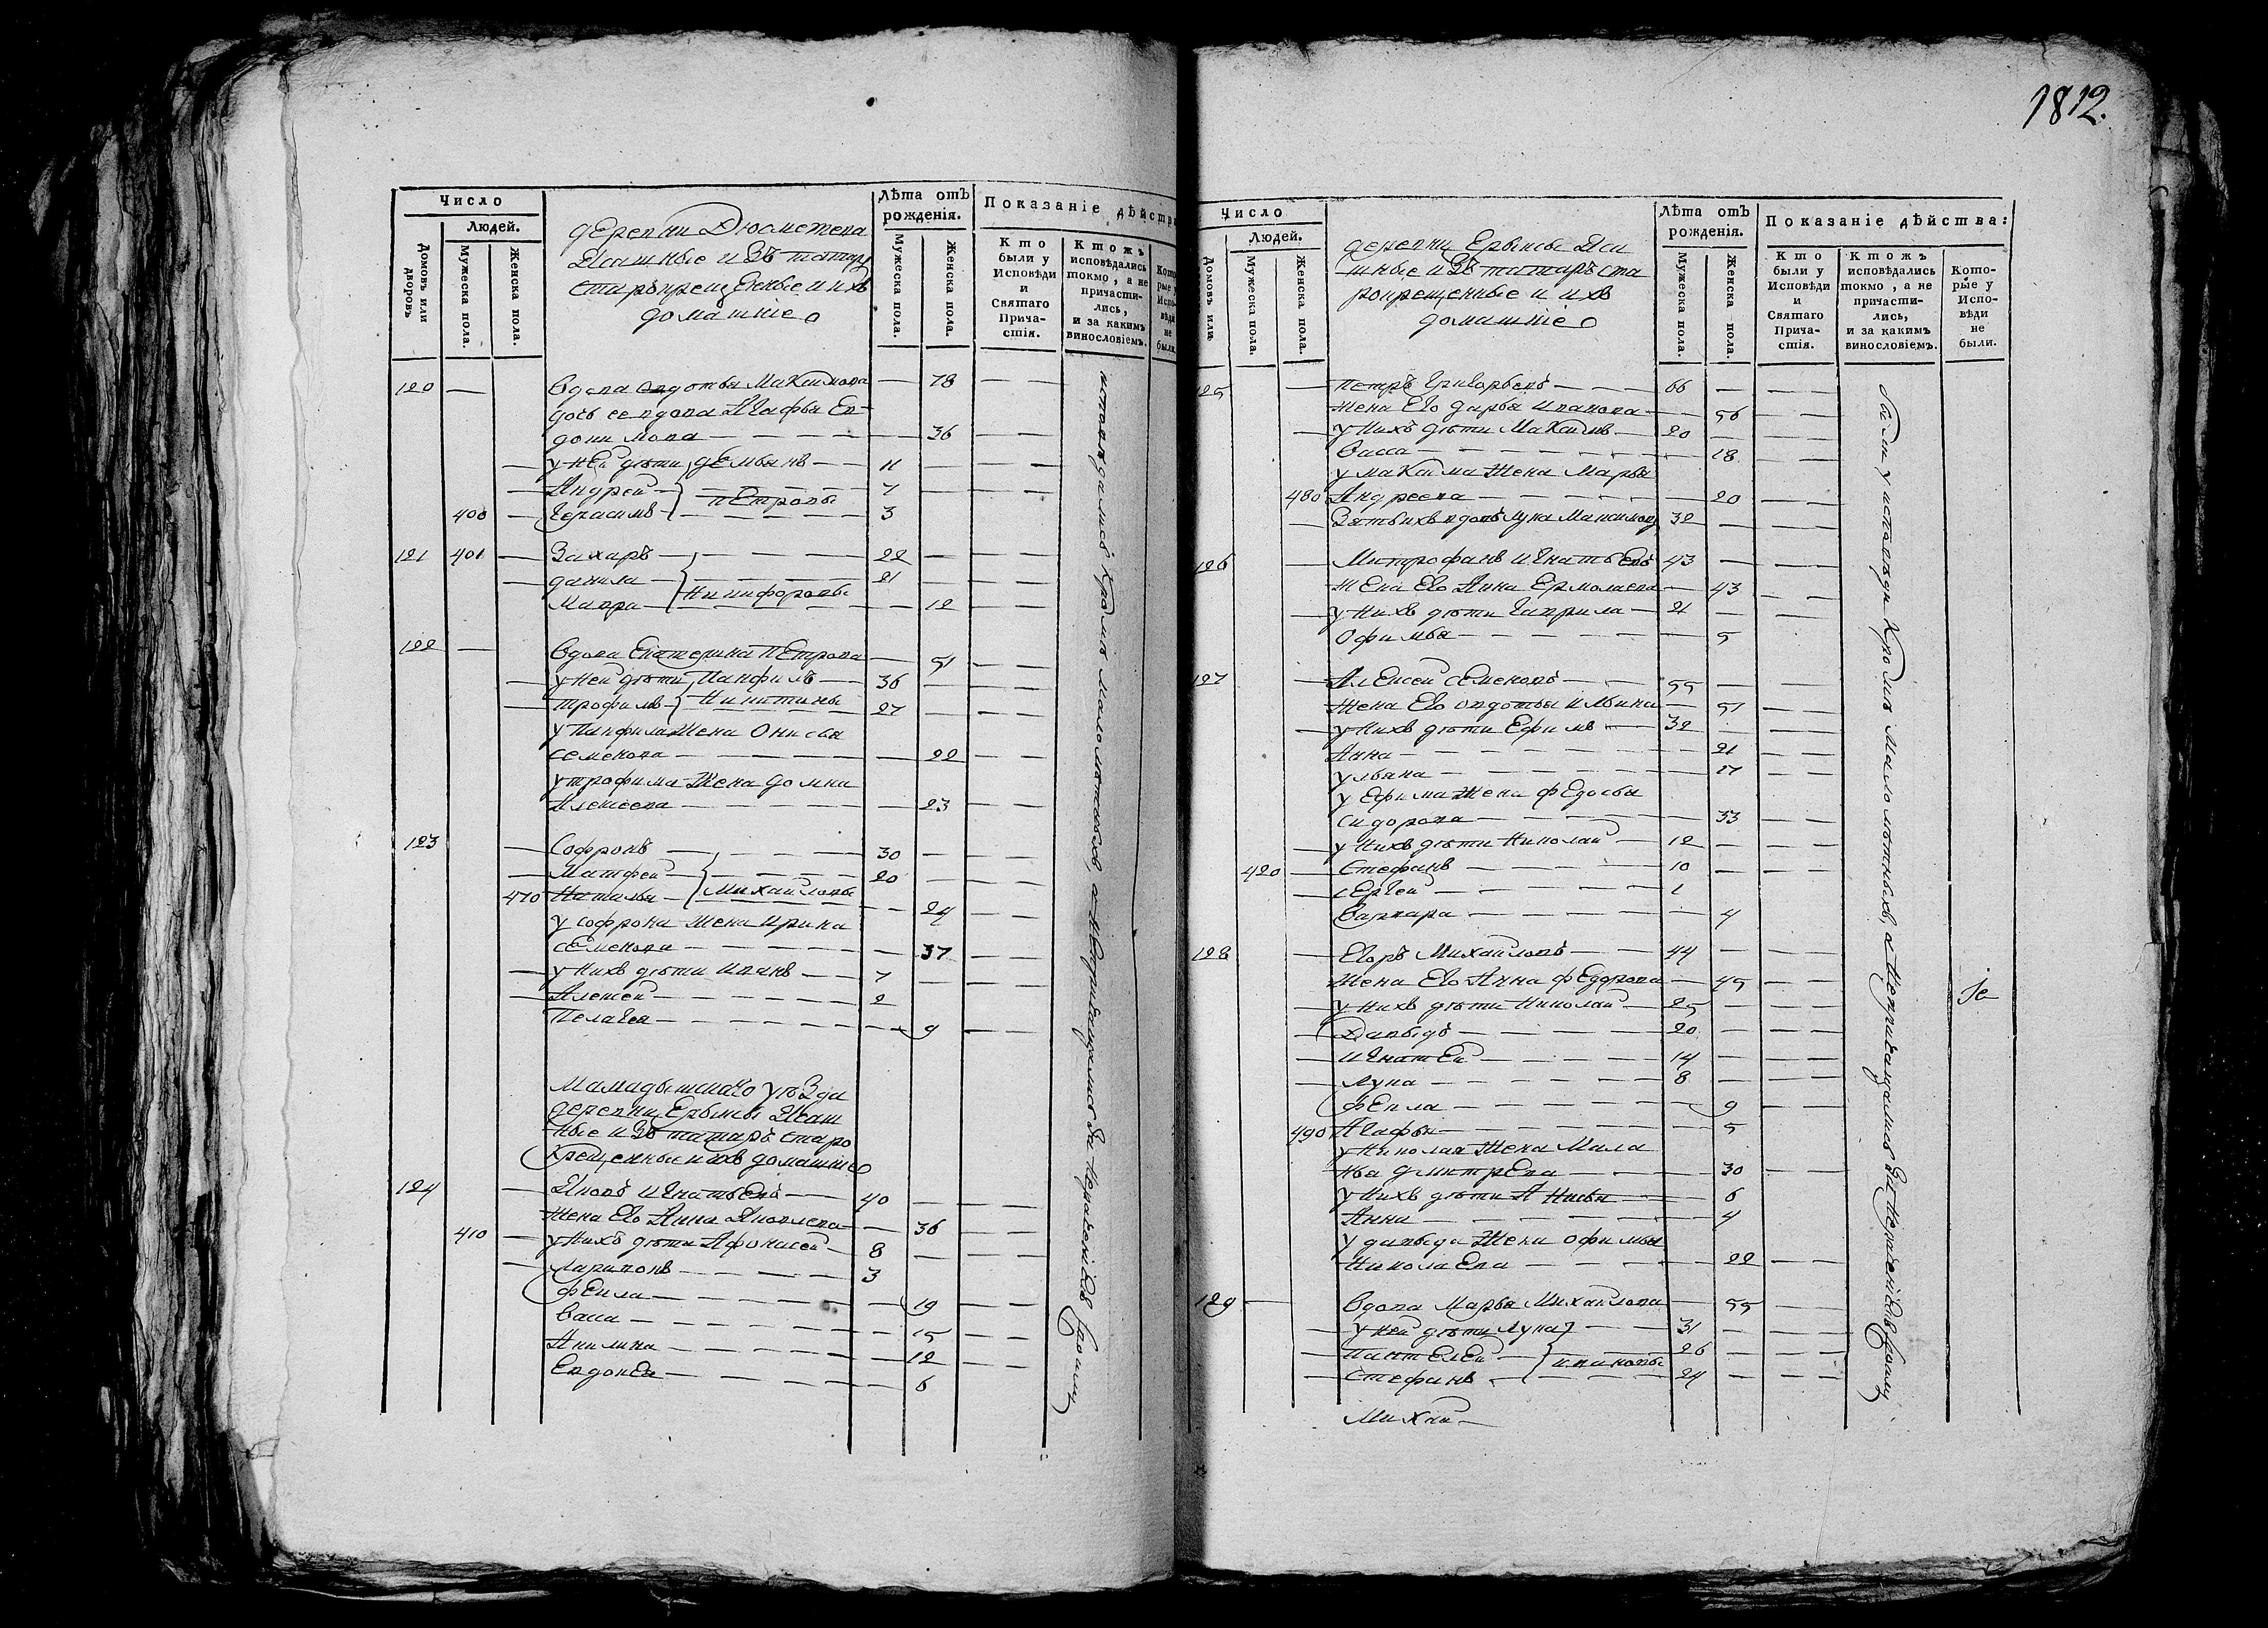 1812.
Число
Людей.
Домовъ или дворовъ
Мужеска пола.
Женска пола.
деревни Дюсметева
Ясашные изъ татаръ
старокрещенные и ихъ
домашние
Лѣта отъ рожденія.
Мужеска пола.
Женска пола.
Показаніе дѣйства
Кто были у Исповѣди и Святаго Причастія.
Ктожъ исповѣдались токмо, а не причастились, и за какимъ винословіемъ.
Которые у Исповѣди не были.
120 — Вдова Овдотья Максимова — 78 — —
дочь ее вдова Агафья Ев-
докимова — — — — 36 — —
— у ней дѣти, Демьянъ — — 11 — — —
— Андрей — } — — — 7 — — —
Петровы
400 — Герасимъ — — — — 3
121 401 — Захаръ — — — — 22 — — —
— Данила — } — — — 21
Никифоровы
Мавра — — — — 12 — —
122 — Вдова Екатерина Петрова — 51 — —
— у ней дѣти, Панфилъ — 36 — — —
— Трофимъ — } Никитины 27 — — —
у Панфила Жена Онисья
Семенова — — — — 22 — —
у трофима Жена Домна
Алексеева — — — — 23 — —
123 — Софронъ — — — 30 — — —
— Матфей — } — — — 20 — — —
470 Наталья — } Михайловы — 24 — —
у Софрона Жена Ирина
Семенова — — — — 37 — —
— у нихъ дѣти Иванъ — — 7 — — —
— Алексей — — — — 2
Пелагея — — — — 9 — —
Мамадышскаго уѣзда
деревни Ерыксы Ясаш
ные изъ татаръ старо
крещенные и ихъ домашние
124 — Яковъ Игнатьевъ — — 40 — — —
Жена Его Анна Яковлева — — 36 — —
410 — у нихъ дѣти Афонасей — 8 — — —
— Ларивонъ — — — — 3
Фекла — — — — 19 — —
Васса — — — — 15 — —
Акилина — — — — 12 — —
Евдокея — — — — 6
исповѣдались кромѣ малолѣтныхъ, а
Число
Людей.
Домовъ или
Мужеска пола.
Женска пола.
деревни Ерыксы Яса
шные изъ татаръ ста
рокрещенные и ихъ
домашние
Лѣта отъ рожденія.
Мужеска пола.
Женска пола.
Показаніе дѣйства:
Кто были у Исповѣди и Святаго Причастія.
Ктожъ исповѣдались токмо, а не причастились, и за какимъ винословіемъ.
Которые у Исповѣди не были.
125 — Петръ Григорьевъ — — 66 — — —
Жена Его Дарья Иванова — — 56 — —
— у нихъ дѣти Максимъ — 20 — — —
Васса — — — — 18 — —
у максима Жена Марья
480 Андреева — — — — 20 — —
— Зять ихъ вдовъ Лука Максимовъ 32 — — —
126 — Митрофанъ Игнатьевъ 43 — — —
Жена Его Анна Ермолаева — 43 — —
— у нихъ дѣти Гаврила — 21 — — —
Офимья — — — — 5
127 — Алексей Семеновъ — — 55 — — —
Жена Его Овдотья Ильина — 51 — —
— у нихъ дѣти Ефимъ — 32 — — —
Анна — — — — 21 — —
Ульяна — — — — 17 — —
у Ефима Жена Федосья
Сидорова — — — — 33 — —
— у нихъ дѣти Николай — 12 — — —
420 — Стефанъ — — — — 10 — — —
— Сергей — — — — 1
Варвара — — — — 4
128 — Егоръ Михайловъ — — 44 — — —
Жена Его Анна Федорова — 45 — —
— у нихъ дѣти Николай — 25 — — —
— Давыдъ — — — — 20 — — —
— Игнатей — — — — 14 — — —
— Лука — — — — 8 — — —
Фекла — — — — 9 — —
490 Агафья — — — — 5
у Николая Жена Мала
нья Дмитрева — — — 30 — —
у нихъ дѣти Аксинья — 6
Анна — — — — 4
у давыда Жена Офимья
Николаева — — — — 22 — —
129 — Вдова Марья Михайлова — 55 — —
— у ней дѣти Лука } — — 31 — — —
— Пантелей — } Ивановы 26 — — —
— Стефанъ — } — — 24 — — —
Михай—
были у исповѣди кромѣ малолѣтныхъ, а